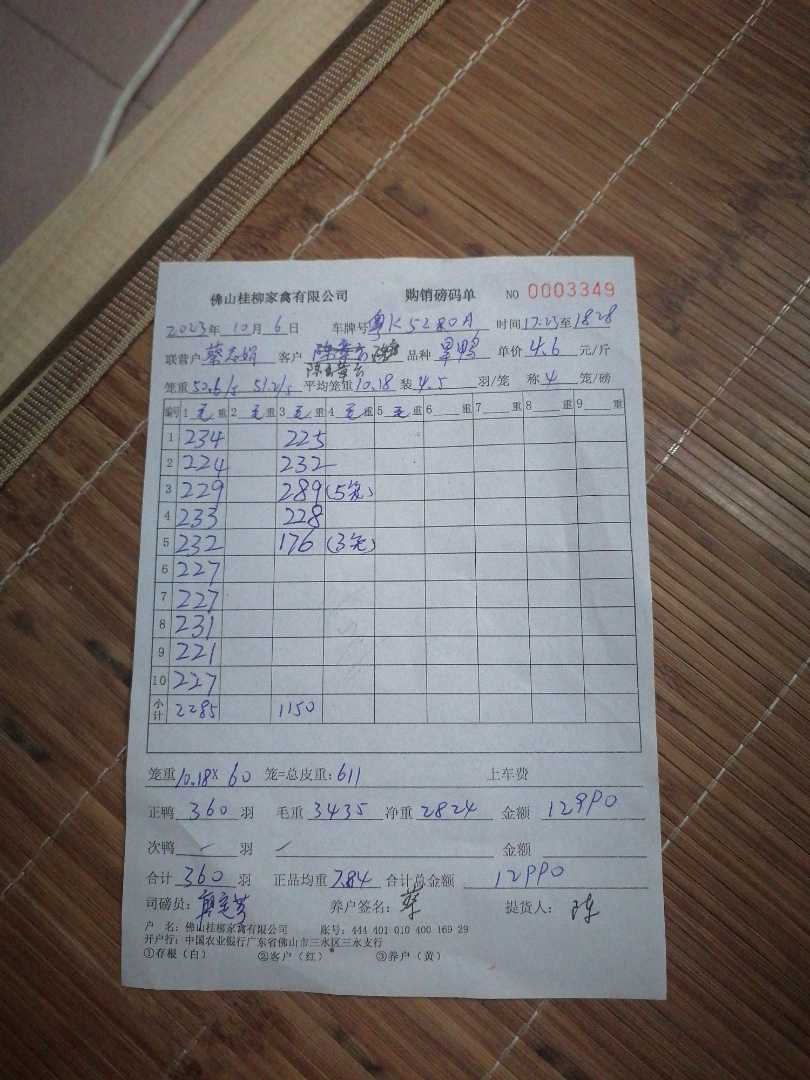 佛山桂柳家禽有限公司 购销磅码单 NO 0003349
2023年 10月 6日 车牌号 粤K5280A 时间 17:25至1828
联营户 客户 品种 单价 4.6 元/斤
笼重 50.6/5 51.2/5 平均笼重 10.18 装 4.5 羽/笼 称 4 笼/磅
编号 1 毛 重 2 毛 重 3 毛 重 4 毛 重 5 毛 重 6 重 7 重 8 重 9 重
1 234 225
2 224 232
3 229 289 (5笼)
4 233 228
5 232 176 (3笼)
6 227
7 227
8 231
9 221
10 227
小计 2285 1150
笼重 10.18× 60 笼=总皮重: 611 上车费
正鸭 360 羽 毛重 3435 净重 2824 金额 12990
次鸭 — 羽 — 金额
合计 360 羽 正品均重 7.84 合计总金额 12990
司磅员: 养户签名: 蔡 提货人: 陈
户 名: 佛山桂柳家禽有限公司 账号: 444 401 010 400 169 29
开户行: 中国农业银行广东省佛山市三水区三水支行
①存根(白) ②客户(红) ③养户(黄)